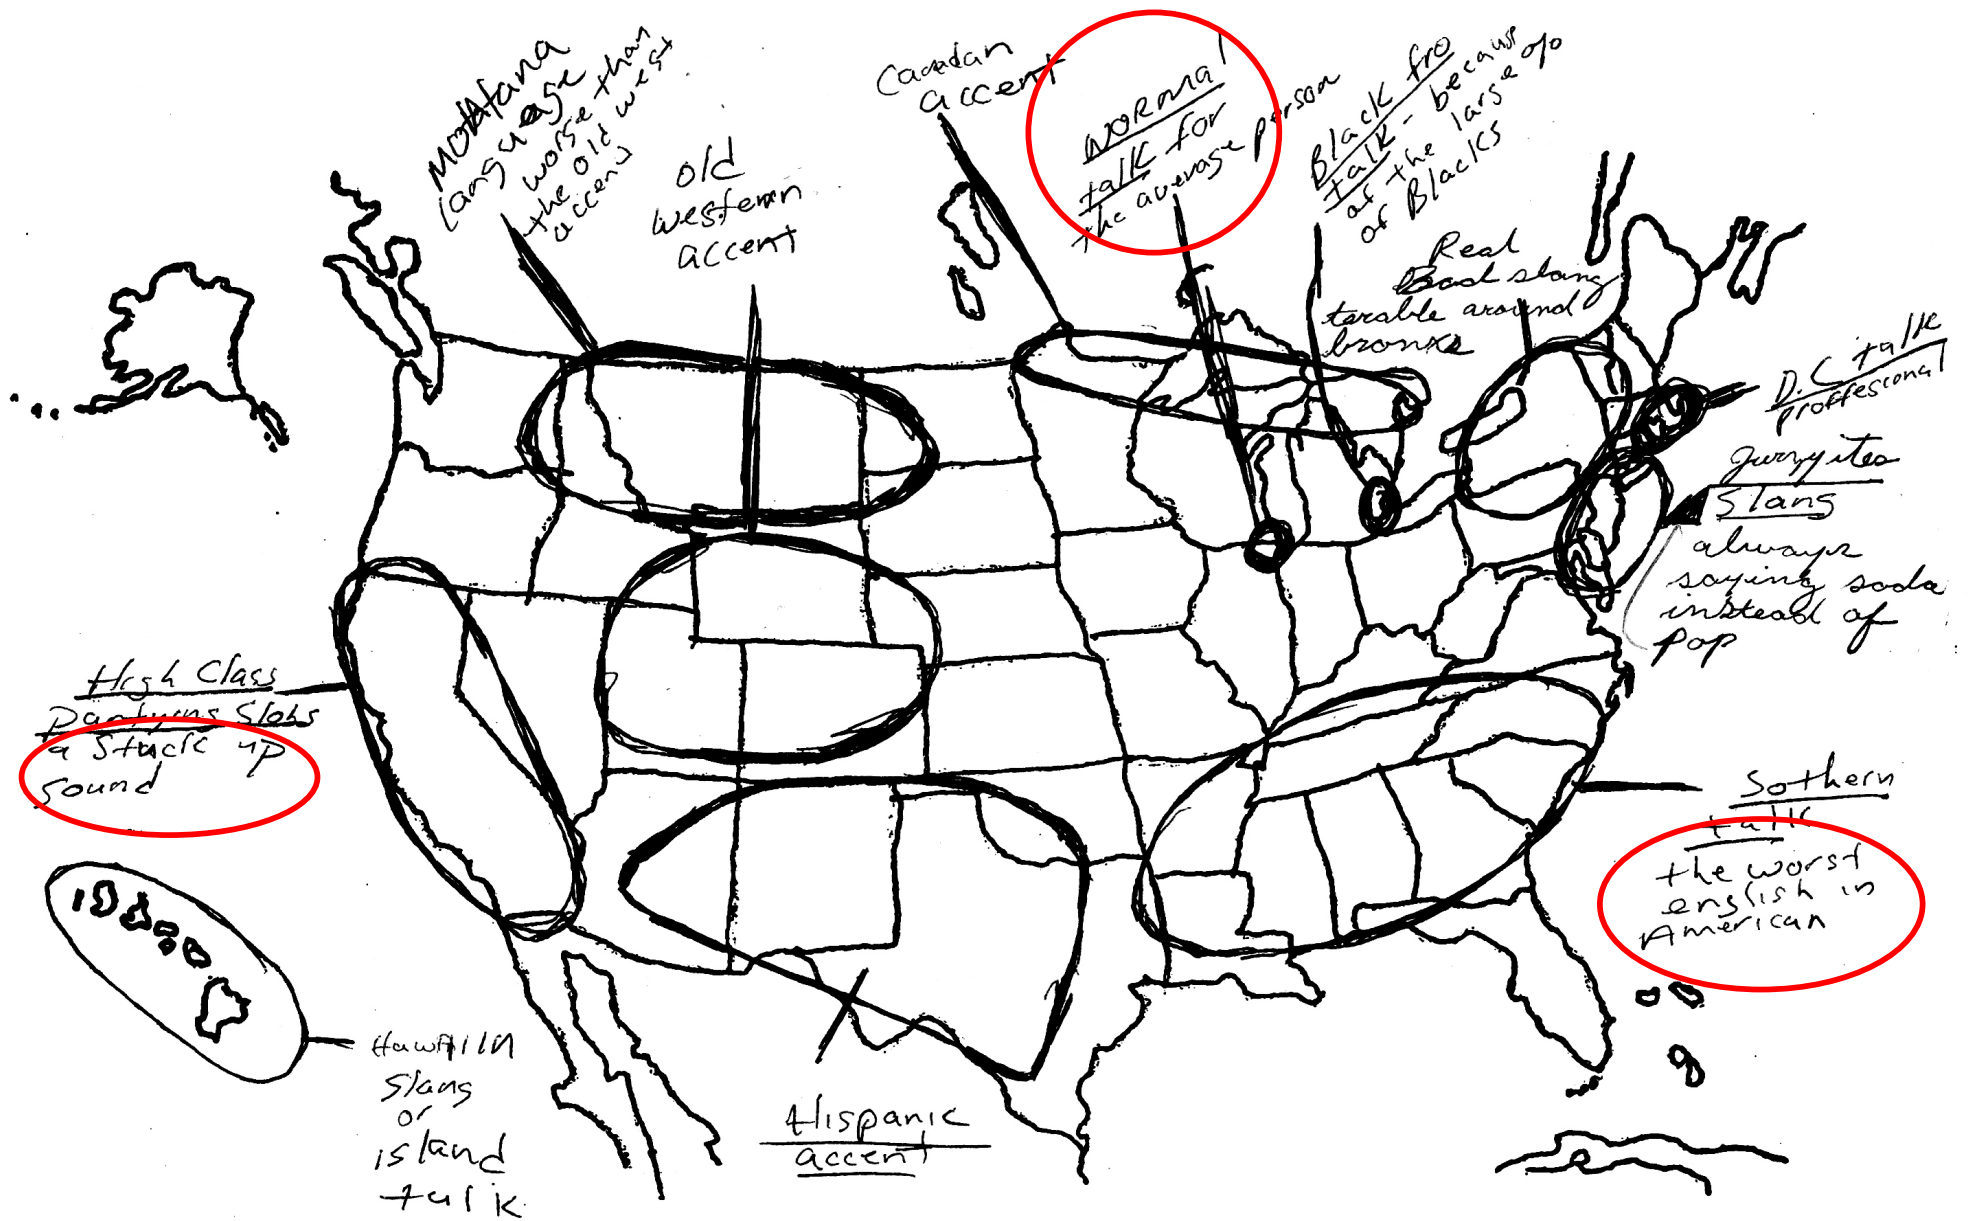 Montana
language
worse than
the old west
accent
old
western
accent
Canadan
accent
NORMal
talk for
the average person
Black fro
talk - because
of the large %
of Blacks
Real
Bad slang
terable around
bronxs
D.C talk
proffesional
Jurzyites
Slang
always
saying soda
instead of
pop
High Class
Partyens Slobs
a stuck up
sound
Sothern
talk
the worst
english in
American
Hawaiin
Slang
or
island
talk
Hispanic
accent